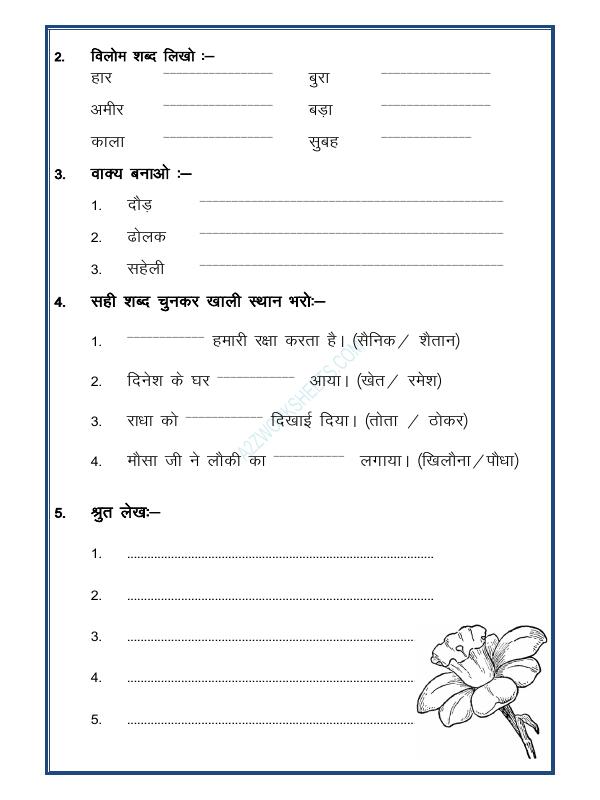 2. विलोम शब्द लिखो :–
हार ___________________ बुरा ___________________
अमीर ___________________ बड़ा ___________________
काला ___________________ सुबह ________________
3. वाक्य बनाओ :–
1. दौड़ ______________________________________
2. ढोलक ______________________________________
3. सहेली ______________________________________
4. सही शब्द चुनकर खाली स्थान भरो:–
1. ____________ हमारी रक्षा करता है। (सैनिक / शैतान)
2. दिनेश के घर ____________ आया। (खेत / रमेश)
3. राधा को ____________ दिखाई दिया। (तोता / ठोकर)
4. मौसा जी ने लौकी का ___________ लगाया। (खिलौना/पौधा)
A2ZWORKSHEETS.COM
5. श्रुत लेख:–
1. ..........................................................................................
2. ..........................................................................................
3. ....................................................................................
4. ....................................................................................
5. ....................................................................................